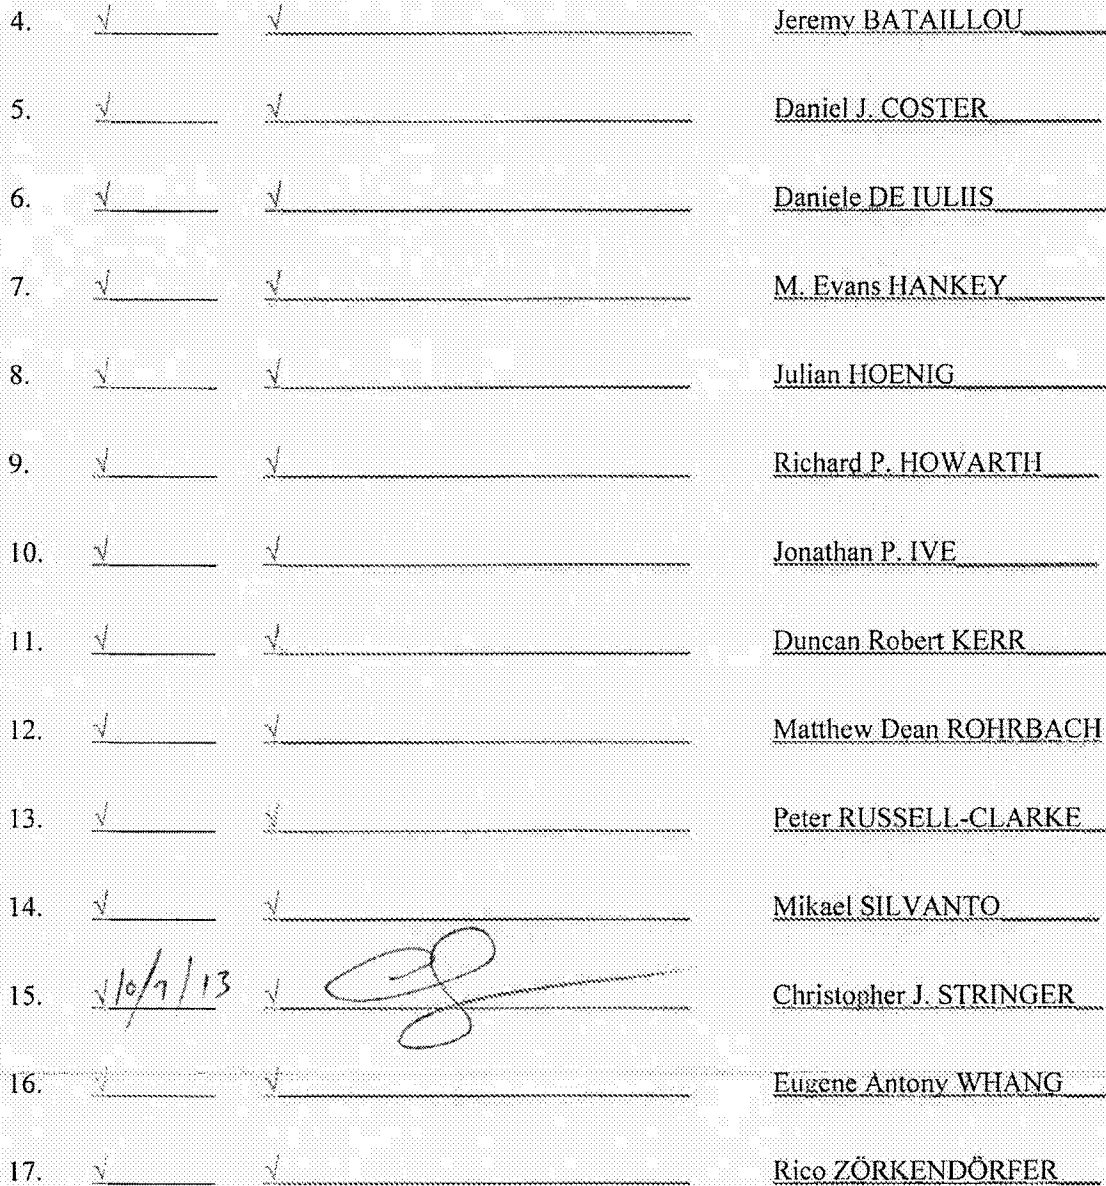 4. √ √ Jeremy BATAILLOU
5. √ √ Daniel J. COSTER
6. √ √ Daniele DE IULIIS
7. √ √ M. Evans HANKEY
8. √ √ Julian HOENIG
9. √ √ Richard P. HOWARTH
10. √ √ Jonathan P. IVE
11. √ √ Duncan Robert KERR
12. √ √ Matthew Dean ROHRBACH
13. √ √ Peter RUSSELL-CLARKE
14. √ √ Mikael SILVANTO
15. √ 10/7/13 √ Christopher J. STRINGER
16. √ √ Eugene Antony WHANG
17. √ √ Rico ZÖRKENDÖRFER